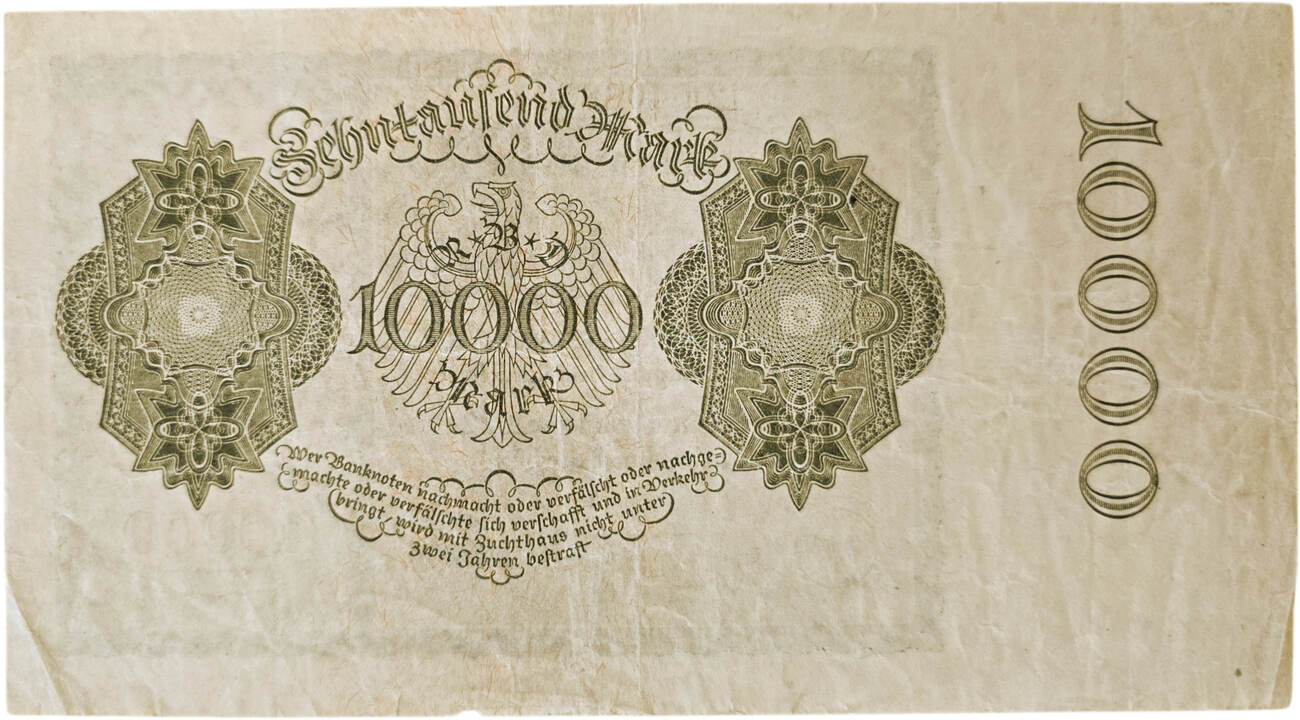 Zehntausend Mark
R★B★D
10000
Mark
Wer Banknoten nachmacht oder verfälscht oder nachge=
machte oder verfälschte sich verschafft und in Verkehr
bringt, wird mit Zuchthaus nicht unter
zwei Jahren bestraft
10000